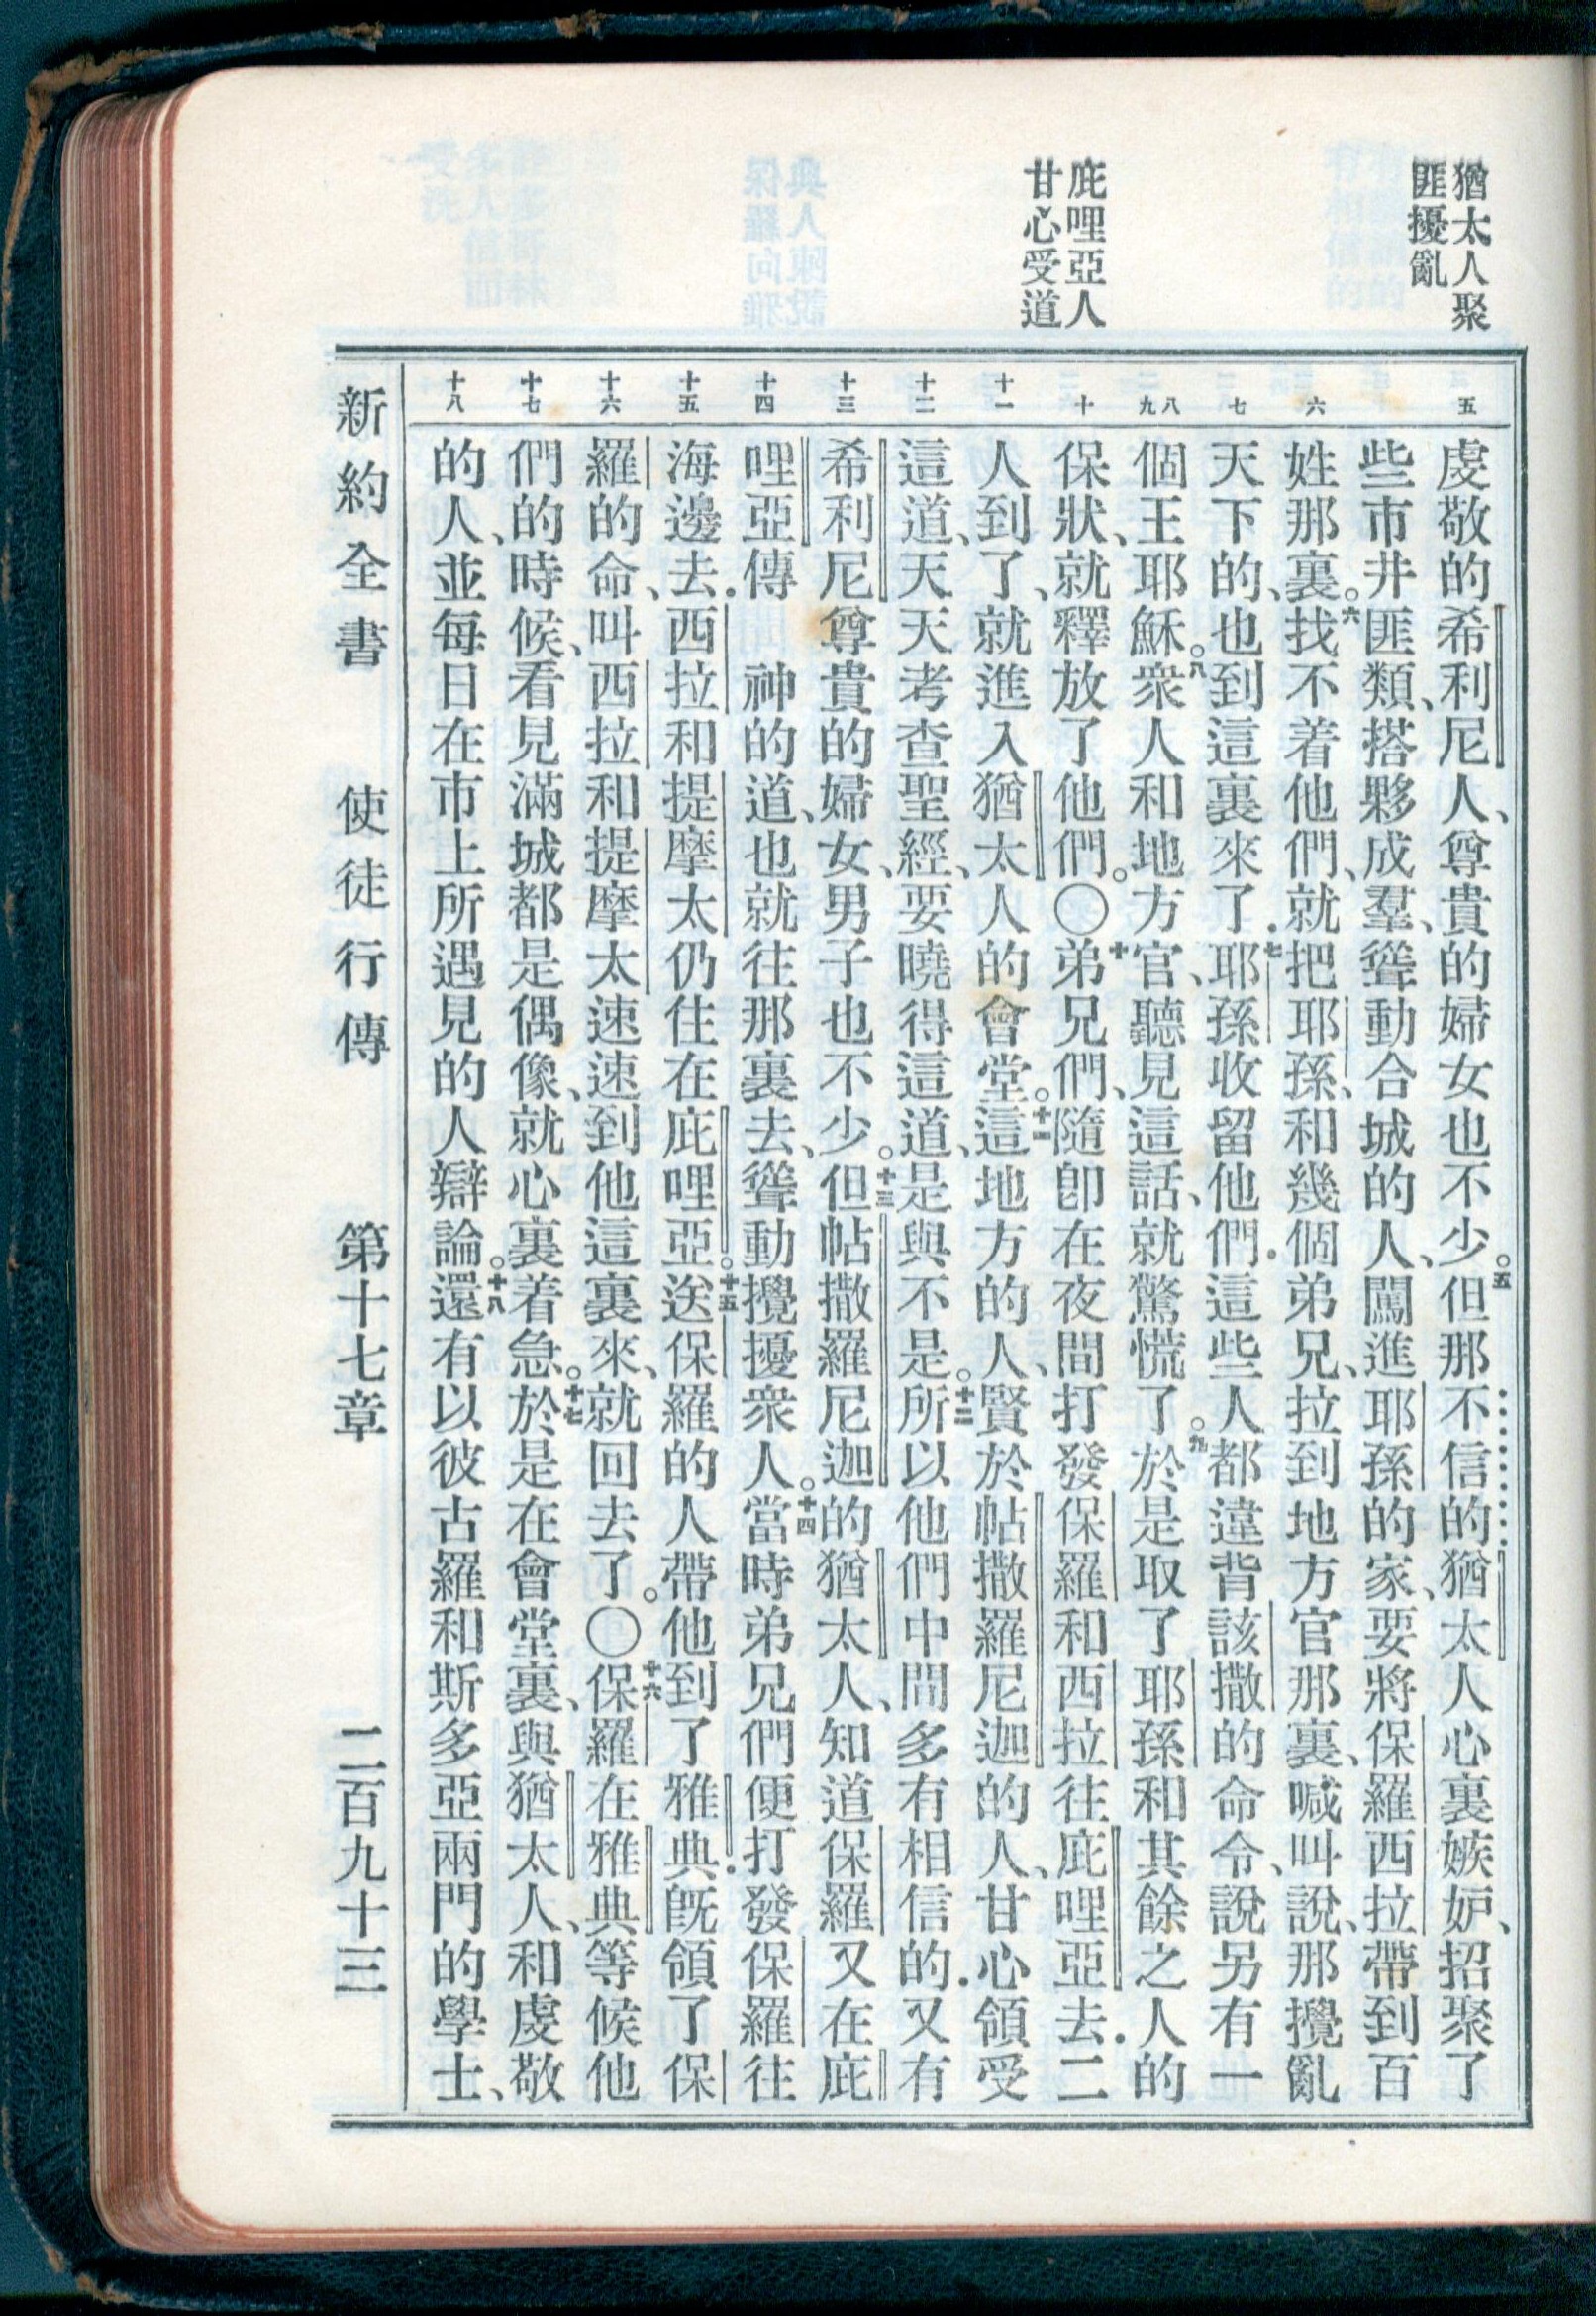 猶太人聚
匪擾亂
庇哩亞人
甘心受道
五
六
七
八
九
十
十一
十二
十三
十四
十五
十六
十七
十八
虔敬的希利尼人、尊貴的婦女也不少。五但那不信的猶太人心裏嫉妒、招聚了
些市井匪類、搭夥成羣、聳動合城的人、闖進耶孫的家、要將保羅西拉帶到百
姓那裏。六找不着他們、就把耶孫、和幾個弟兄、拉到地方官那裏、喊叫說、那攪亂
天下的、也到這裏來了．七耶孫收留他們．這些人都違背該撒的命令、說另有一
個王耶穌。八衆人和地方官、聽見這話、就驚慌了。九於是取了耶孫和其餘之人的
保狀、就釋放了他們。〇十弟兄們、隨卽在夜間打發保羅和西拉往庇哩亞去．二
人到了、就進入猶太人的會堂。十一這地方的人、賢於帖撒羅尼迦的人、甘心領受
這道、天天考查聖經、要曉得這道、是與不是。十二所以他們中間多有相信的．又有
希利尼尊貴的婦女、男子也不少。十三但帖撒羅尼迦的猶太人、知道保羅又在庇
哩亞傳　神的道、也就往那裏去、聳動攪擾衆人。十四當時弟兄們便打發保羅往
海邊去．西拉和提摩太仍住在庇哩亞。十五送保羅的人帶他到了雅典．旣領了保
羅的命、叫西拉和提摩太速速到他這裏來、就回去了。〇十六保羅在雅典等候他
們的時候、看見滿城都是偶像、就心裏着急。十七於是在會堂裏、與猶太人、和虔敬
的人、並每日在市上所遇見的人辯論。十八還有以彼古羅和斯多亞兩門的學士、
新約全書　使徒行傳　第十七章　二百九十三